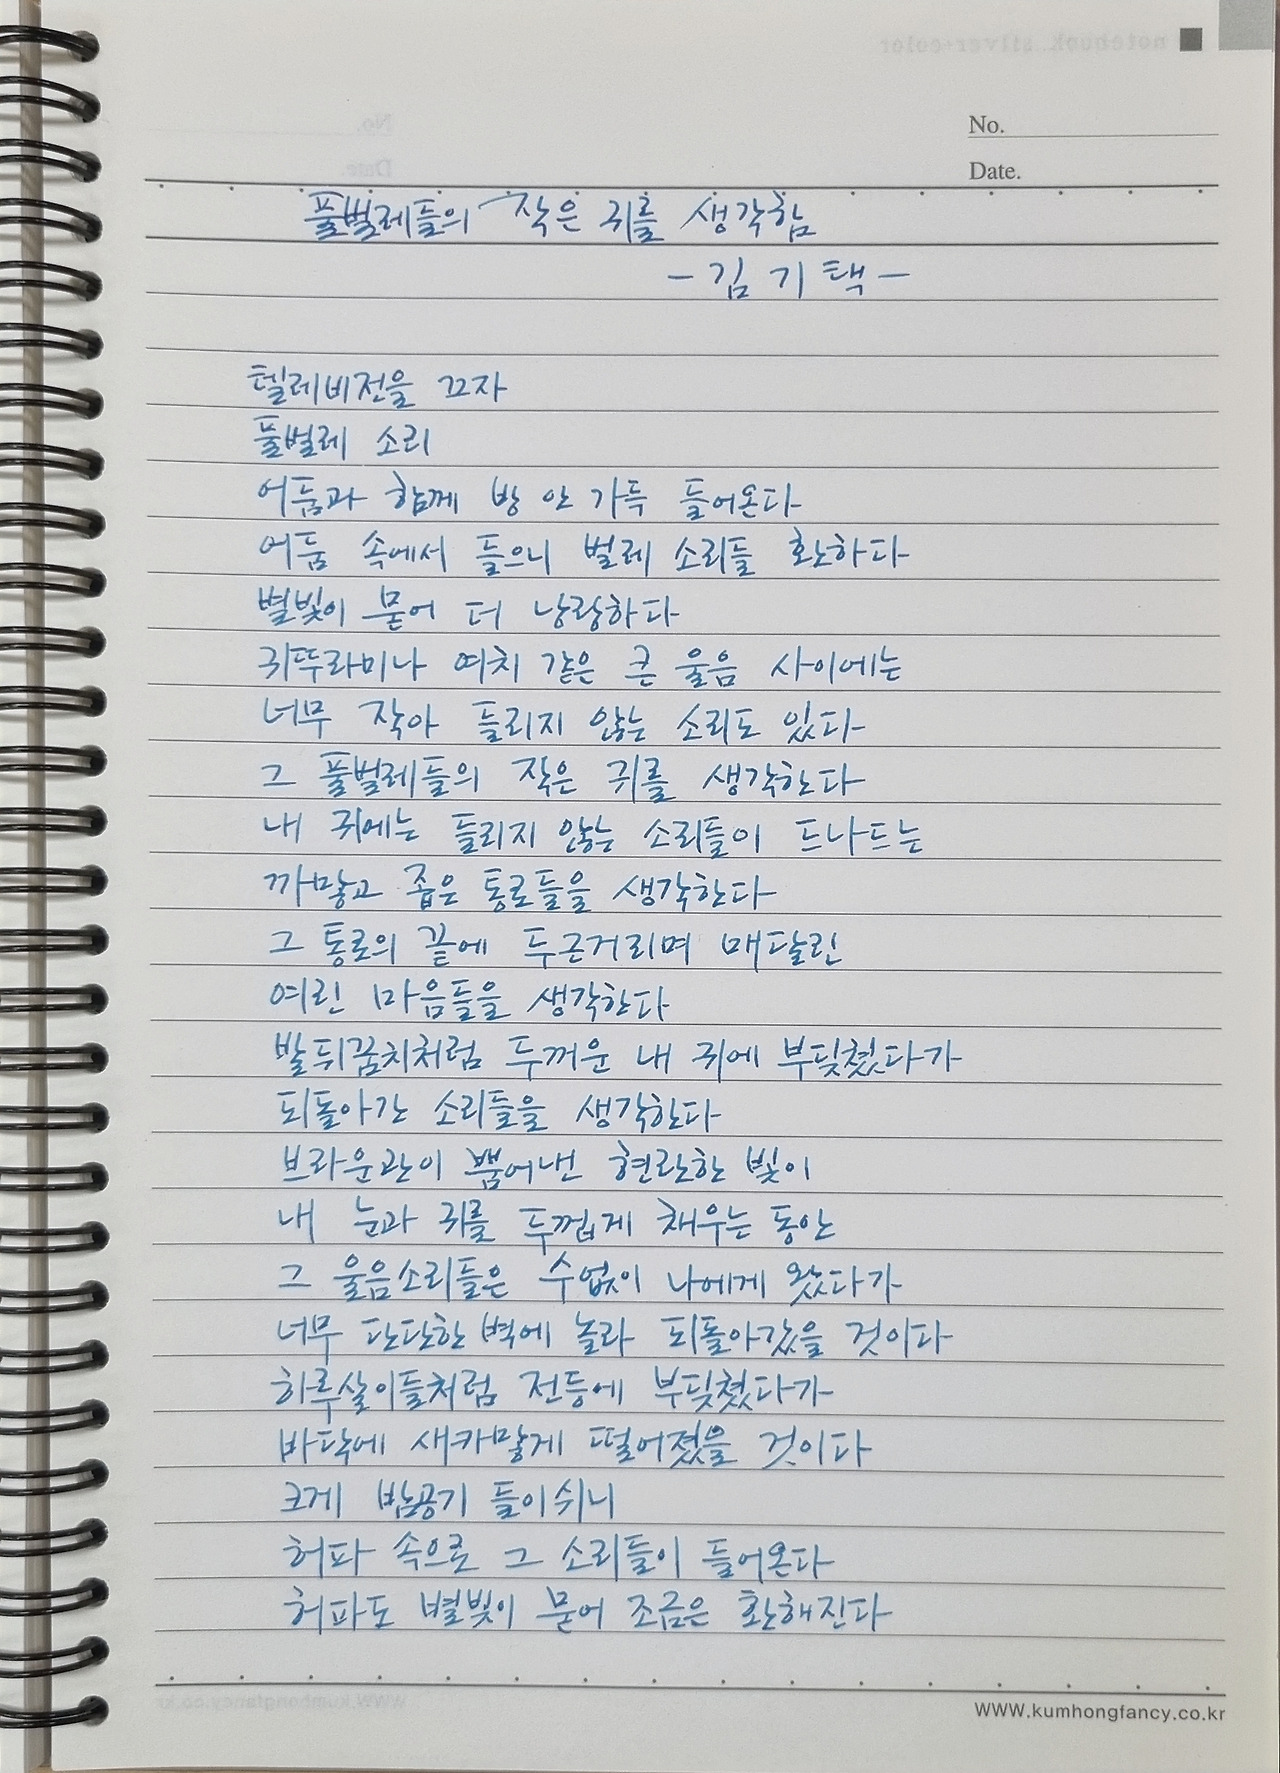 notebook silver+color
No.
Date.
풀벌레들의 작은 귀를 생각함
- 김기택 -
텔레비전을 끄자
풀벌레 소리
어둠과 함께 방 안 가득 들어온다
어둠 속에서 들으니 벌레 소리들 환하다
별빛이 묻어 더 낭랑하다
귀뚜라미나 여치 같은 큰 울음 사이에는
너무 작아 들리지 않는 소리도 있다
그 풀벌레들의 작은 귀를 생각한다
내 귀에는 들리지 않는 소리들이 드나드는
까맣고 좁은 통로들을 생각한다
그 통로의 끝에 두근거리며 매달린
여린 마음들을 생각한다
발뒤꿈치처럼 두꺼운 내 귀에 부딪쳤다가
되돌아간 소리들을 생각한다
브라운관이 뿜어낸 현란한 빛이
내 눈과 귀를 두껍게 채우는 동안
그 울음소리들은 수없이 나에게 왔다가
너무 단단한 벽에 놀라 되돌아갔을 것이다
하루살이들처럼 전등에 부딪쳤다가
바닥에 새카맣게 떨어졌을 것이다
크게 밤공기 들이쉬니
허파 속으로 그 소리들이 들어온다
허파도 별빛이 묻어 조금은 환해진다
WWW.kumhongfancy.co.kr